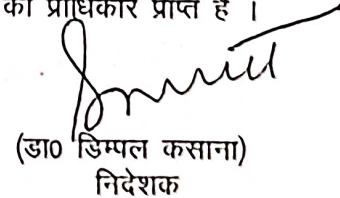 को प्राधिकार प्राप्त है ।
(डा0 डिम्पल कसाना)
निदेशक